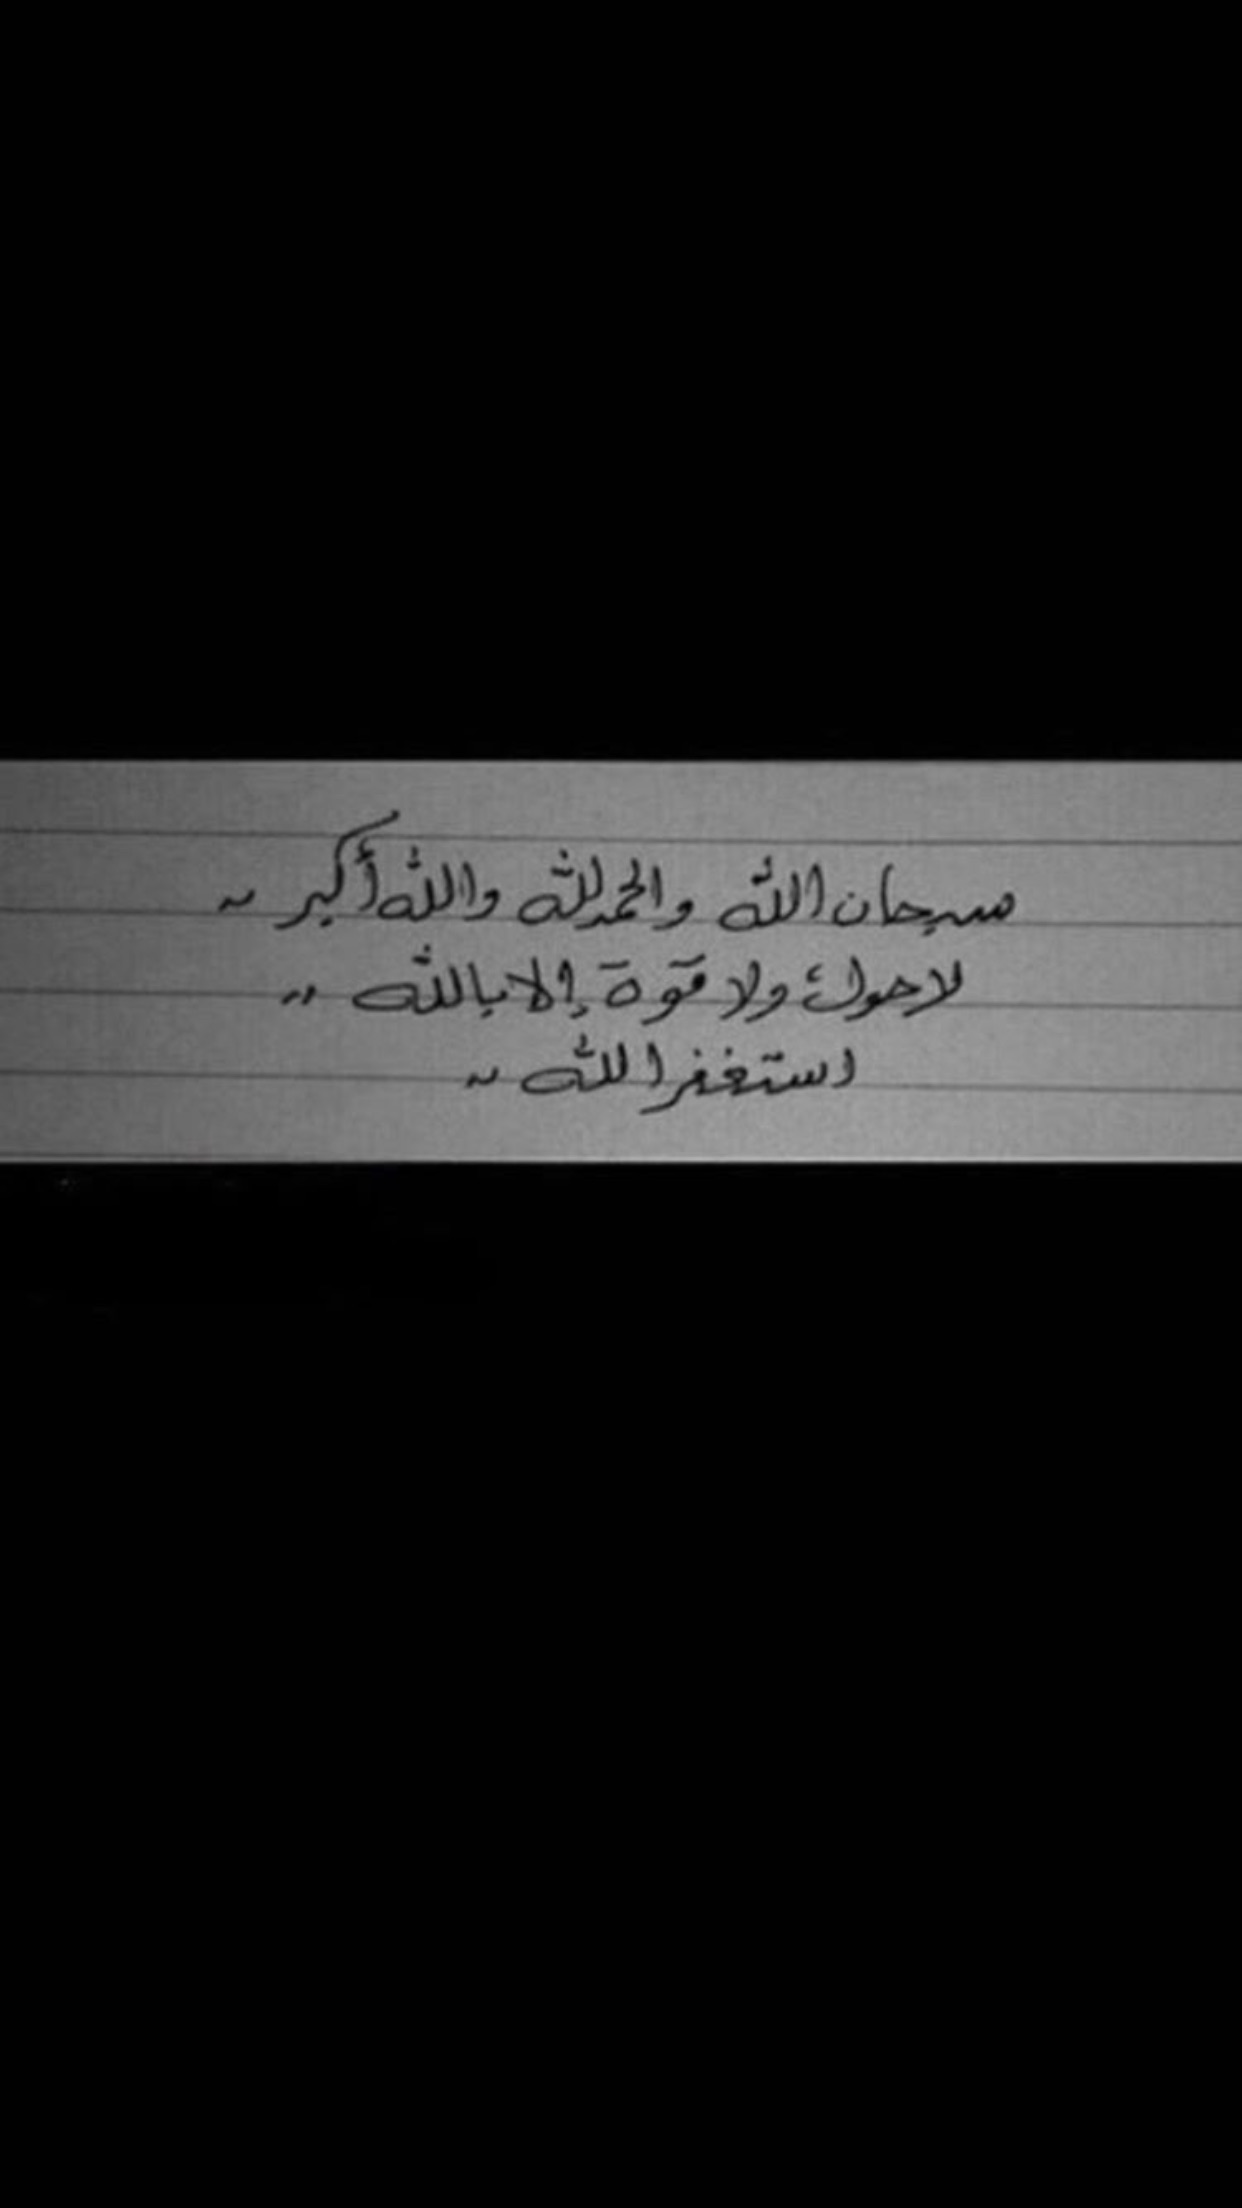 سبحان الله والحمد لله والله أكبر ~
لا حول ولا قوة إلا بالله ..
استغفر الله ~